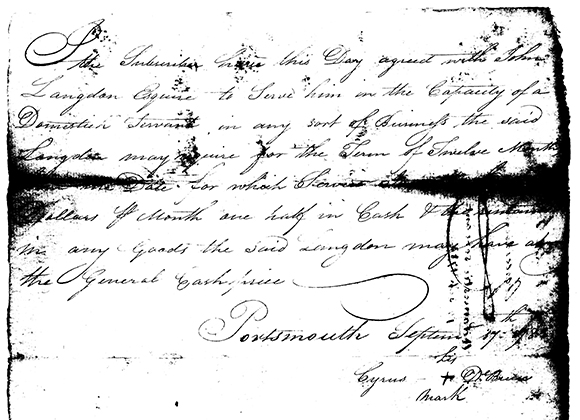 I the Subscriber have this Day agreed with John
Langdon Esquire to Serve him in the Capacity of a
Domestick Servant in any sort of Buisness the said
Langdon may require for the Term of Twelve Month
Date for which Service
Dollars Pr Month one half in Cash & the
in any Goods the said Langdon may have at
the General Cash price
Portsmouth Septemr 17th
his
Cyrus + D. Bruce
mark